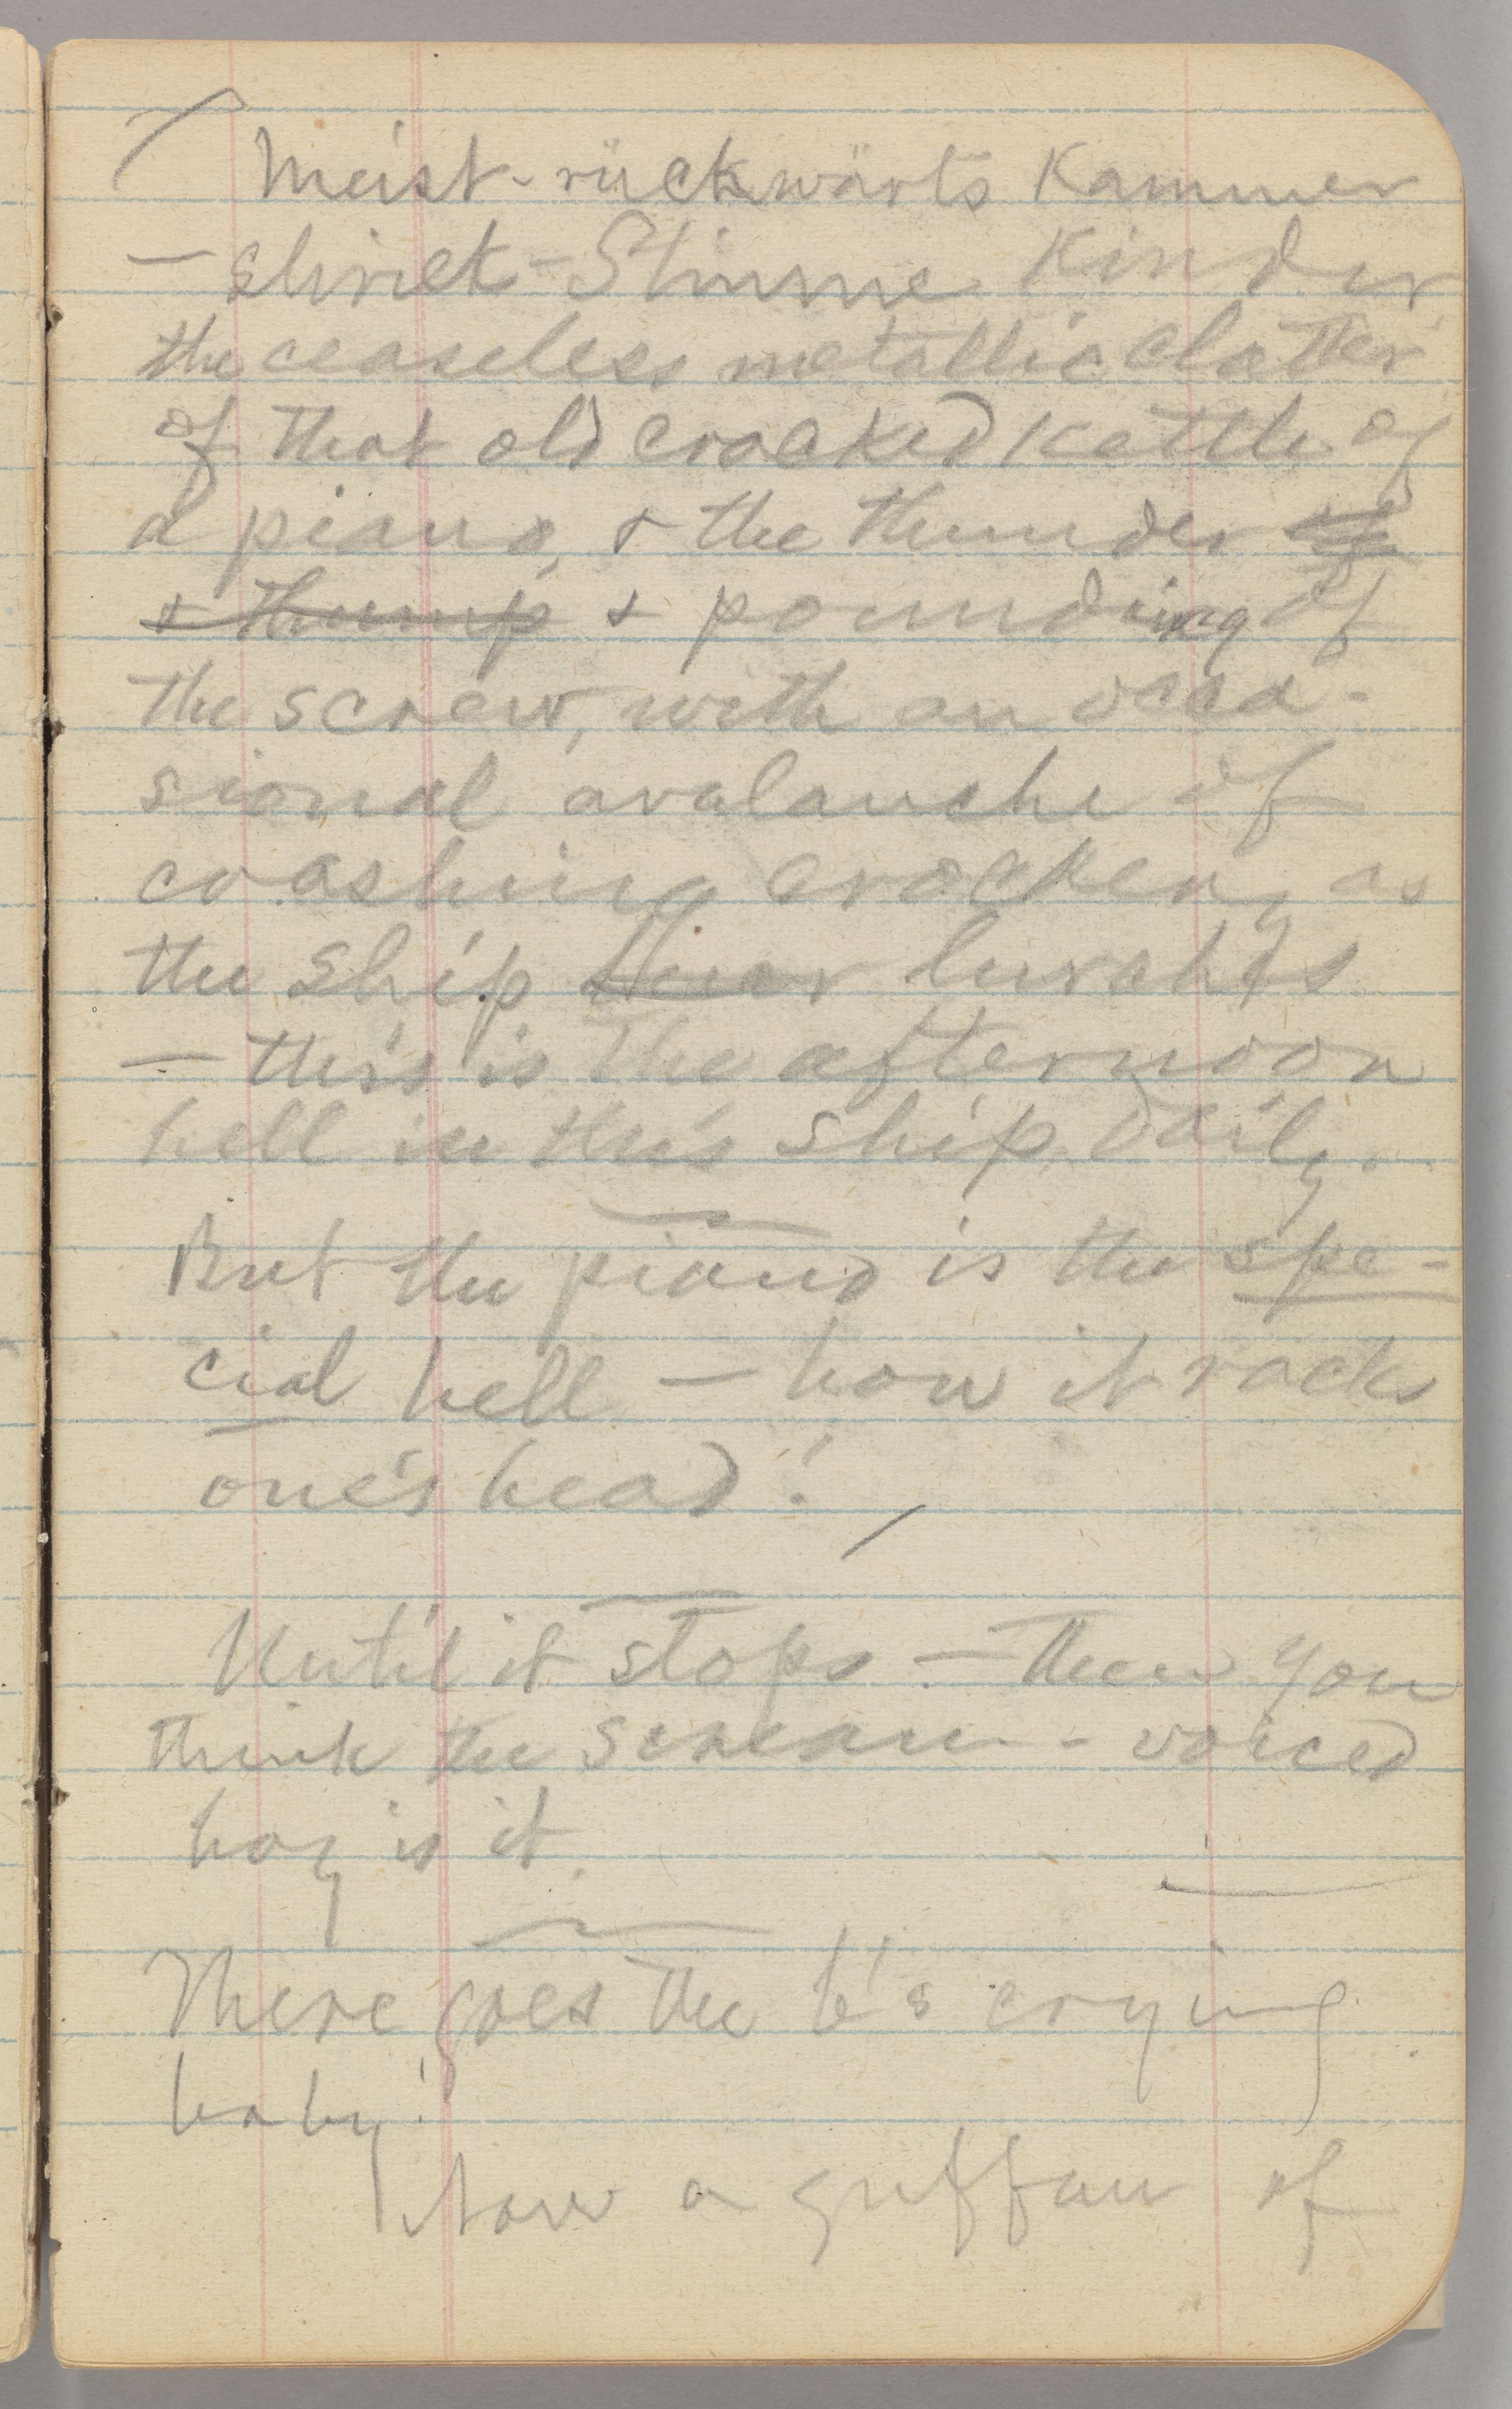 Meist-rückwärts Kammer
— shriek-Stimme Kinder
the ceaseless metallic clatter
of that old cracked kettle of
a piano, & the thunder of
& thump & pounding of
the screw, with an occa-
sional avalanche of
crashing crockery as
the ship lurches
— this is the afternoon
hell in this ship daily.
But the piano is the spe-
cial hell — how it racks
one's head!
Until it stops — then you
think the scream-voiced
boy is it.
There goes the b's crying
baby!
Now a guffaw of